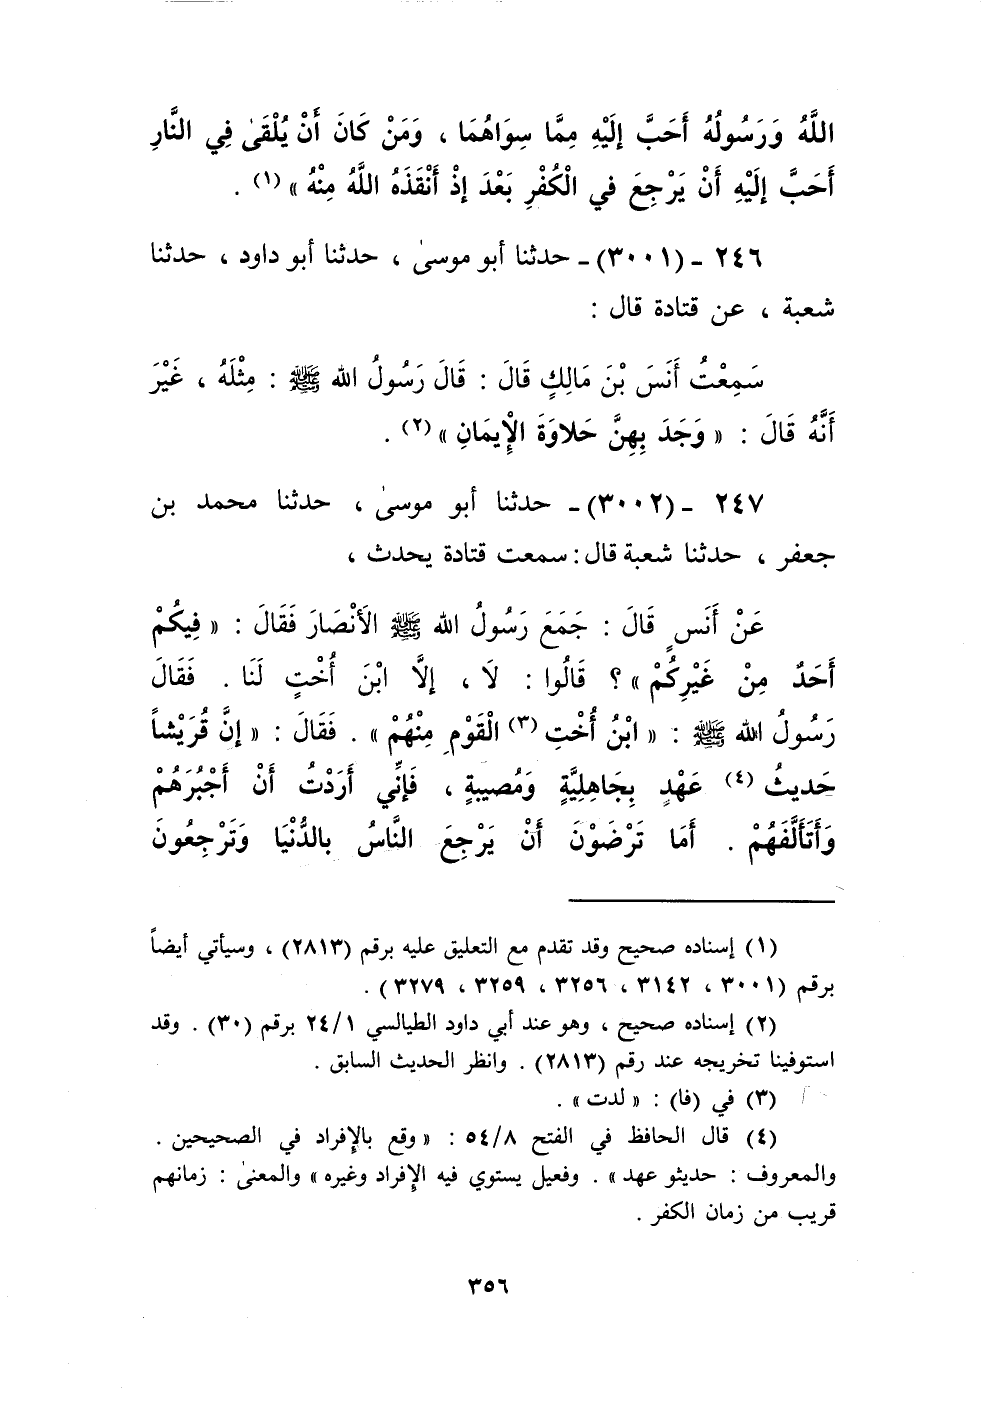 اللَّهُ وَرَسُولُهُ أَحَبَّ إلَيْهِ مِمَّا سِوَاهُمَا ، وَمَنْ كَانَ أَنْ يُلْقَىٰ فِي النَّارِ
أَحَبَّ إلَيْهِ أَنْ يَرْجِعَ في الْكُفْرِ بَعْدَ إذْ أَنْقَذَهُ اللَّهُ مِنْهُ » (١) .
٢٤٦ ـ (٣٠٠١) ـ حدثنا أبو موسىٰ ، حدثنا أبو داود ، حدثنا
شعبة ، عن قتادة قال :
سَمِعْتُ أَنَسَ بْنَ مَالِكٍ قَالَ : قَالَ رَسُولُ الله ﷺ : مِثْلَهُ ، غَيْرَ
أَنَّهُ قَالَ : « وَجَدَ بِهِنَّ حَلاوَةَ الْإِيمَانِ » (٢) .
٢٤٧ ـ (٣٠٠٢) ـ حدثنا أبو موسىٰ ، حدثنا محمد بن
جعفر ، حدثنا شعبة قال : سمعت قتادة يحدث ،
عَنْ أَنَسٍ قَالَ : جَمَعَ رَسُولُ الله ﷺ الَأنْصَارَ فَقَالَ : « فِيكُمْ
أَحَدٌ مِنْ غَيْرِكُمْ » ؟ قَالُوا : لَا ، إلَّا ابْنَ أُخْتٍ لَنَا . فَقَالَ
رَسُولُ الله ﷺ : « ابْنُ أُخْتِ (٣) الْقَوْمِ مِنْهُمْ » . فَقَالَ : « إنَّ قُرَيْشاً
حَديثُ (٤) عَهْدٍ بِجَاهِلِيَّةٍ وَمُصيبةٍ ، فَإنِّي أَرَدْتُ أَنْ أَجْبُرَهُمْ
وَأَتَأَلَّفَهُمْ . أَمَا تَرْضَوْنَ أَنْ يَرْجِعَ النَّاسُ بالدُّنْيَا وَتَرْجِعُونَ
(١) إسناده صحيح وقد تقدم مع التعليق عليه برقم (٢٨١٣) ، وسيأتي أيضاً
برقم (٣٠٠١ ، ٣١٤٢ ، ٣٢٥٦ ، ٣٢٥٩ ، ٣٢٧٩) .
(٢) إسناده صحيح ، وهو عند أبي داود الطيالسي ٢٤/١ برقم (٣٠) . وقد
استوفينا تخريجه عند رقم (٢٨١٣) . وانظر الحديث السابق .
(٣) في (فا) : « لدت » .
(٤) قال الحافظ في الفتح ٥٤/٨ : « وقع بالإفراد في الصحيحين .
والمعروف : حديثو عهد » . وفعيل يستوي فيه الإفراد وغيره » والمعنىٰ : زمانهم
قريب من زمان الكفر .
٣٥٦